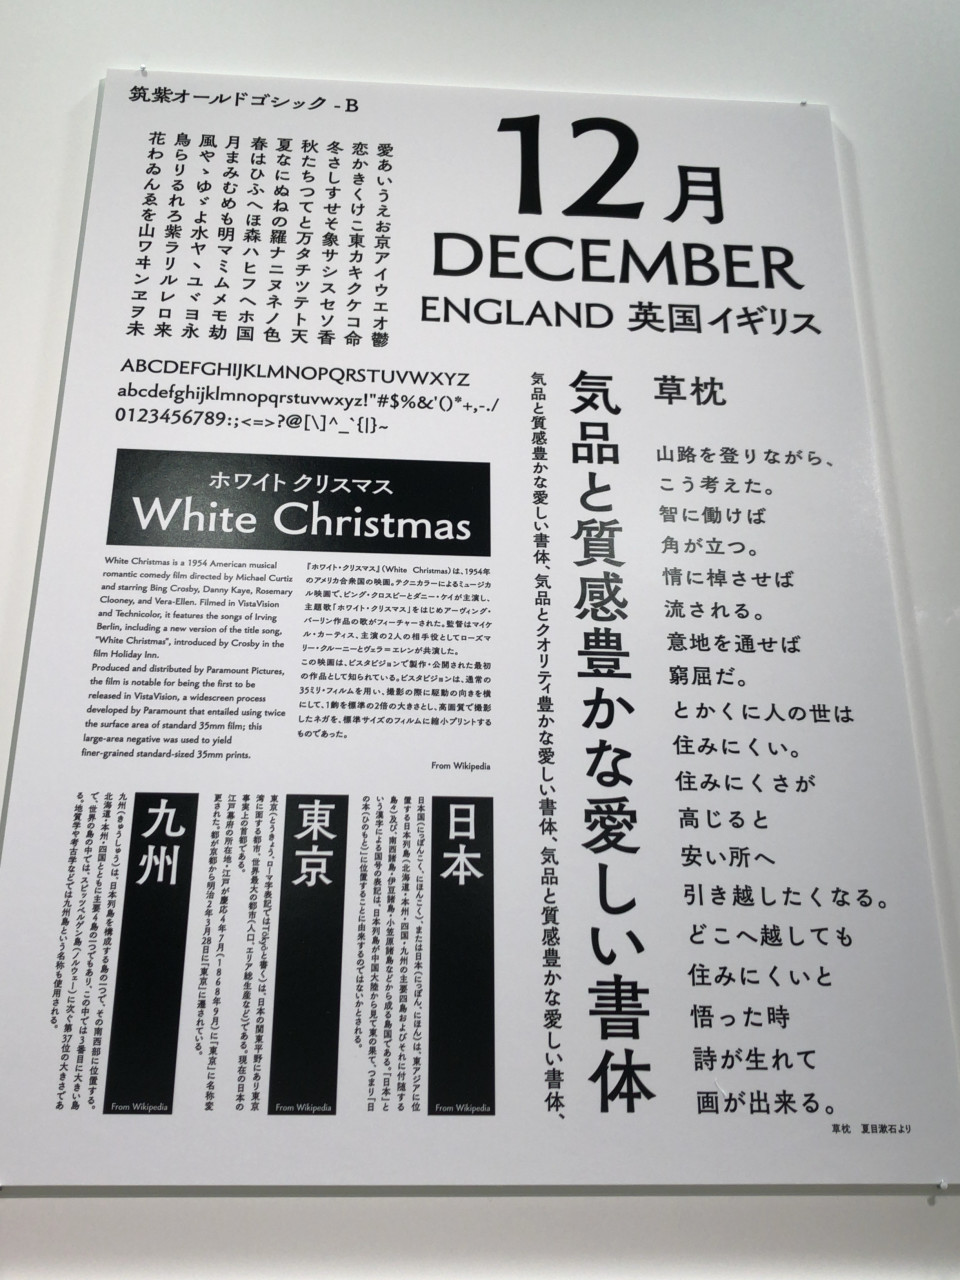 筑紫オールドゴシック - B
12月
DECEMBER
ENGLAND 英国 イギリス
愛あいうえお京アイウエオ鬱
恋かきくけこ東カキクケコ命
冬さしすせそ象サシスセソ香
秋たちつてと万タチツテト天
夏なにぬねの羅ナニヌネノ色
春はひふへほ森ハヒフヘホ国
月まみむめも明マミムメモ劫
風やゝゆゞよ水ヤヽユヾヨ永
鳥らりるれろ紫ラリルレロ来
花わゐんゑを山ワヰンヱヲ未
ABCDEFGHIJKLMNOPQRSTUVWXYZ
abcdefghijklmnopqrstuvwxyz!"#$%&'()*+,-./
0123456789:;<=>?@[\]^_`{|}~
ホワイト クリスマス
White Christmas
White Christmas is a 1954 American musical
romantic comedy film directed by Michael Curtiz
and starring Bing Crosby, Danny Kaye, Rosemary
Clooney, and Vera-Ellen. Filmed in VistaVision
and Technicolor, it features the songs of Irving
Berlin, including a new version of the title song,
"White Christmas", introduced by Crosby in the
film Holiday Inn.
Produced and distributed by Paramount Pictures,
the film is notable for being the first to be
released in VistaVision, a widescreen process
developed by Paramount that entailed using twice
the surface area of standard 35mm film; this
large-area negative was used to yield
finer-grained standard-sized 35mm prints.
『ホワイト・クリスマス』(White Christmas)は、1954年
のアメリカ合衆国の映画。テクニカラーによるミュージカ
ル映画で、ビング・クロスビーとダニー・ケイが主演し、
主題歌「ホワイト・クリスマス」をはじめアーヴィング・
バーリン作品の歌がフィーチャーされた。監督はマイケ
ル・カーティス、主演の2人の相手役としてローズマ
リー・クルーニーとヴェラ=エレンが共演した。
この映画は、ビスタビジョンで製作・公開された最初
の作品として知られている。ビスタビジョンは、通常の
35ミリ・フィルムを用い、撮影の際に駆動の向きを横
にして、1齣を標準の2倍の大きさとし、高画質で撮影
したネガを、標準サイズのフィルムに縮小プリントする
ものであった。
From Wikipedia
気品と質感豊かな愛しい書体
気品と質感豊かな愛しい書体、気品とクオリティ豊かな愛しい書体、気品と質感豊かな愛しい書体、
草枕
山路を登りながら、
こう考えた。
智に働けば
角が立つ。
情に棹させば
流される。
意地を通せば
窮屈だ。
とかくに人の世は
住みにくい。
住みにくさが
高じると
安い所へ
引き越したくなる。
どこへ越しても
住みにくいと
悟った時
詩が生れて
画が出来る。
草枕 夏目漱石より
日本
日本国(にっぽんこく、にほんこく)、または日本(にっぽん、にほん)は、東アジアに位
置する日本列島(北海道・本州・四国・九州の主要四島およびそれに付随する
島々)及び、南西諸島・伊豆諸島・小笠原諸島などから成る島国である。「日本」と
いう漢字による国号の表記は、日本列島が中国大陸から見て東の果て、つまり「日
の本(ひのもと)」に位置することに由来するのではないかとされる。
From Wikipedia
東京
東京(とうきょう、ローマ字表記ではTokyoと書く)は、日本の関東平野にあり東京
湾に面する都市。世界最大の都市(人口、エリア総生産など)である。現在の日本の
事実上の首都である。
江戸幕府の所在地・江戸が慶応4年7月(1868年9月)に「東京」に名称変
更された。都が京都から明治2年3月28日に「東京」に遷されている。
From Wikipedia
九州
九州(きゅうしゅう)は、日本列島を構成する島の一つで、その南西部に位置する。
北海道・本州・四国とともに主要4島の一つでもあり、この中では3番目に大きい島
で、世界の島の中では、スピッツベルゲン島(ノルウェー)に次ぐ第37位の大きさであ
る。地質学や考古学などでは九州島という名称も使用される。
From Wikipedia